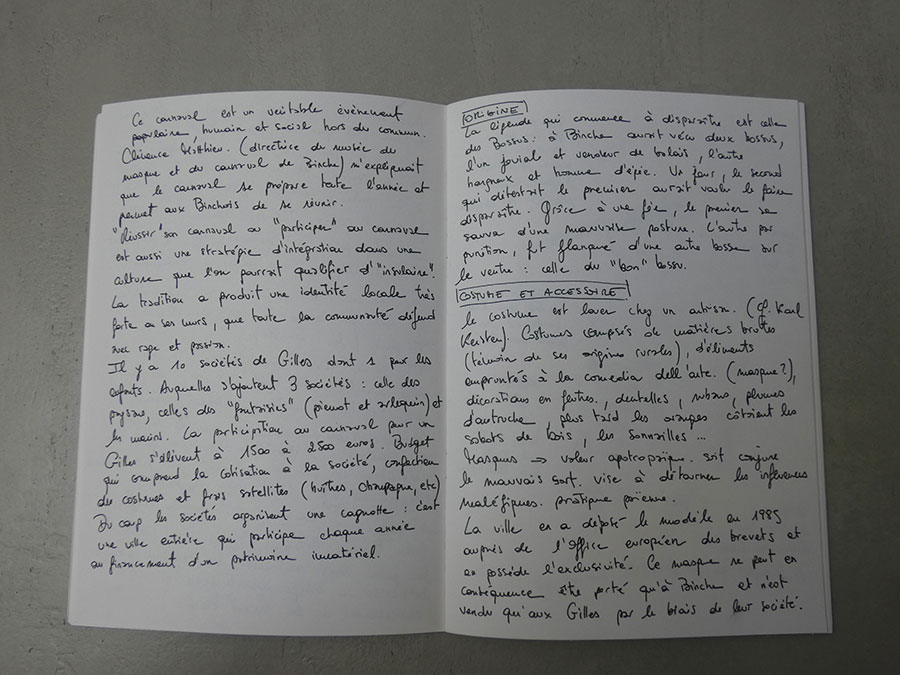 Ce carnaval est un véritable évènement
populaire, humain et social hors du commun.
Clémence Matthieu. (directrice du musée du
masque et du carnaval de Binche) m'expliquait
que le carnaval se propose toute l'année et
permet aux Binchois de se réunir.
"Réussir" son carnaval ou "participer" au carnaval
est aussi une stratégie d'intégration dans une
culture que l'on pourrait qualifier d'"insulaire".
La tradition a produit une identité locale très
forte a ses murs, que toute la communauté défend
avec rage et passion.
Il y a 10 sociétés de Gilles dont 1 pour les
enfants. Auquelles s'ajoutent 3 sociétés : celle des
paysans, celles des "fantaisies" (pierrot et arlequin) et
les marins. La participation au carnaval pour un
Gilles s'élèvent à 1500 à 2500 euros. Budget
qui comprend la cotisation à la société, confection
des costumes et frais satellites (huîtres, champagne, etc)
Du coup les sociétés organisent une cagnotte : c'est
une ville entière qui participe chaque année
au financement d'un patrimoine immatériel.
ORIGINE
La légende qui commence à disparaître est celle
des Bossus : à Binche aurait vécu deux bossus,
l'un jovial et vendeur de balais, l'autre
hargneux et homme d'épée. Un jour, le second
qui détestait le premier aurait voulu le faire
disparaître. Grâce à une fée, le premier se
sauva d'une mauvaise posture. L'autre par
punition, fut flanqué d'une autre bosse sur
le ventre : celle du "bon" bossu.
COSTUME ET ACCESSOIRE
le costume est louer chez un artisan. (cf. Karl
Kersten). Costumes composés de matières brutes
(témoin de ses origines rurales), d'éléments
empruntés à la comedia dell'arte. (masque?),
décorations en feutres, dentelles, rubans, plumes
d'autruche, plus tard les oranges côtoient les
sabots de bois, les sonnailles ...
Masques => valeur apotropaïque. soit conjure
le mauvais sort. vise à détourner les influences
maléfiques. pratique païenne.
La ville en a déposé le modèle en 1985
auprès de l'Office européen des brevets et
en possède l'exclusivité. Ce masque ne peut en
conséquence être porté qu'à Binche et n'est
vendu qu'aux Gilles par le biais de leur société.